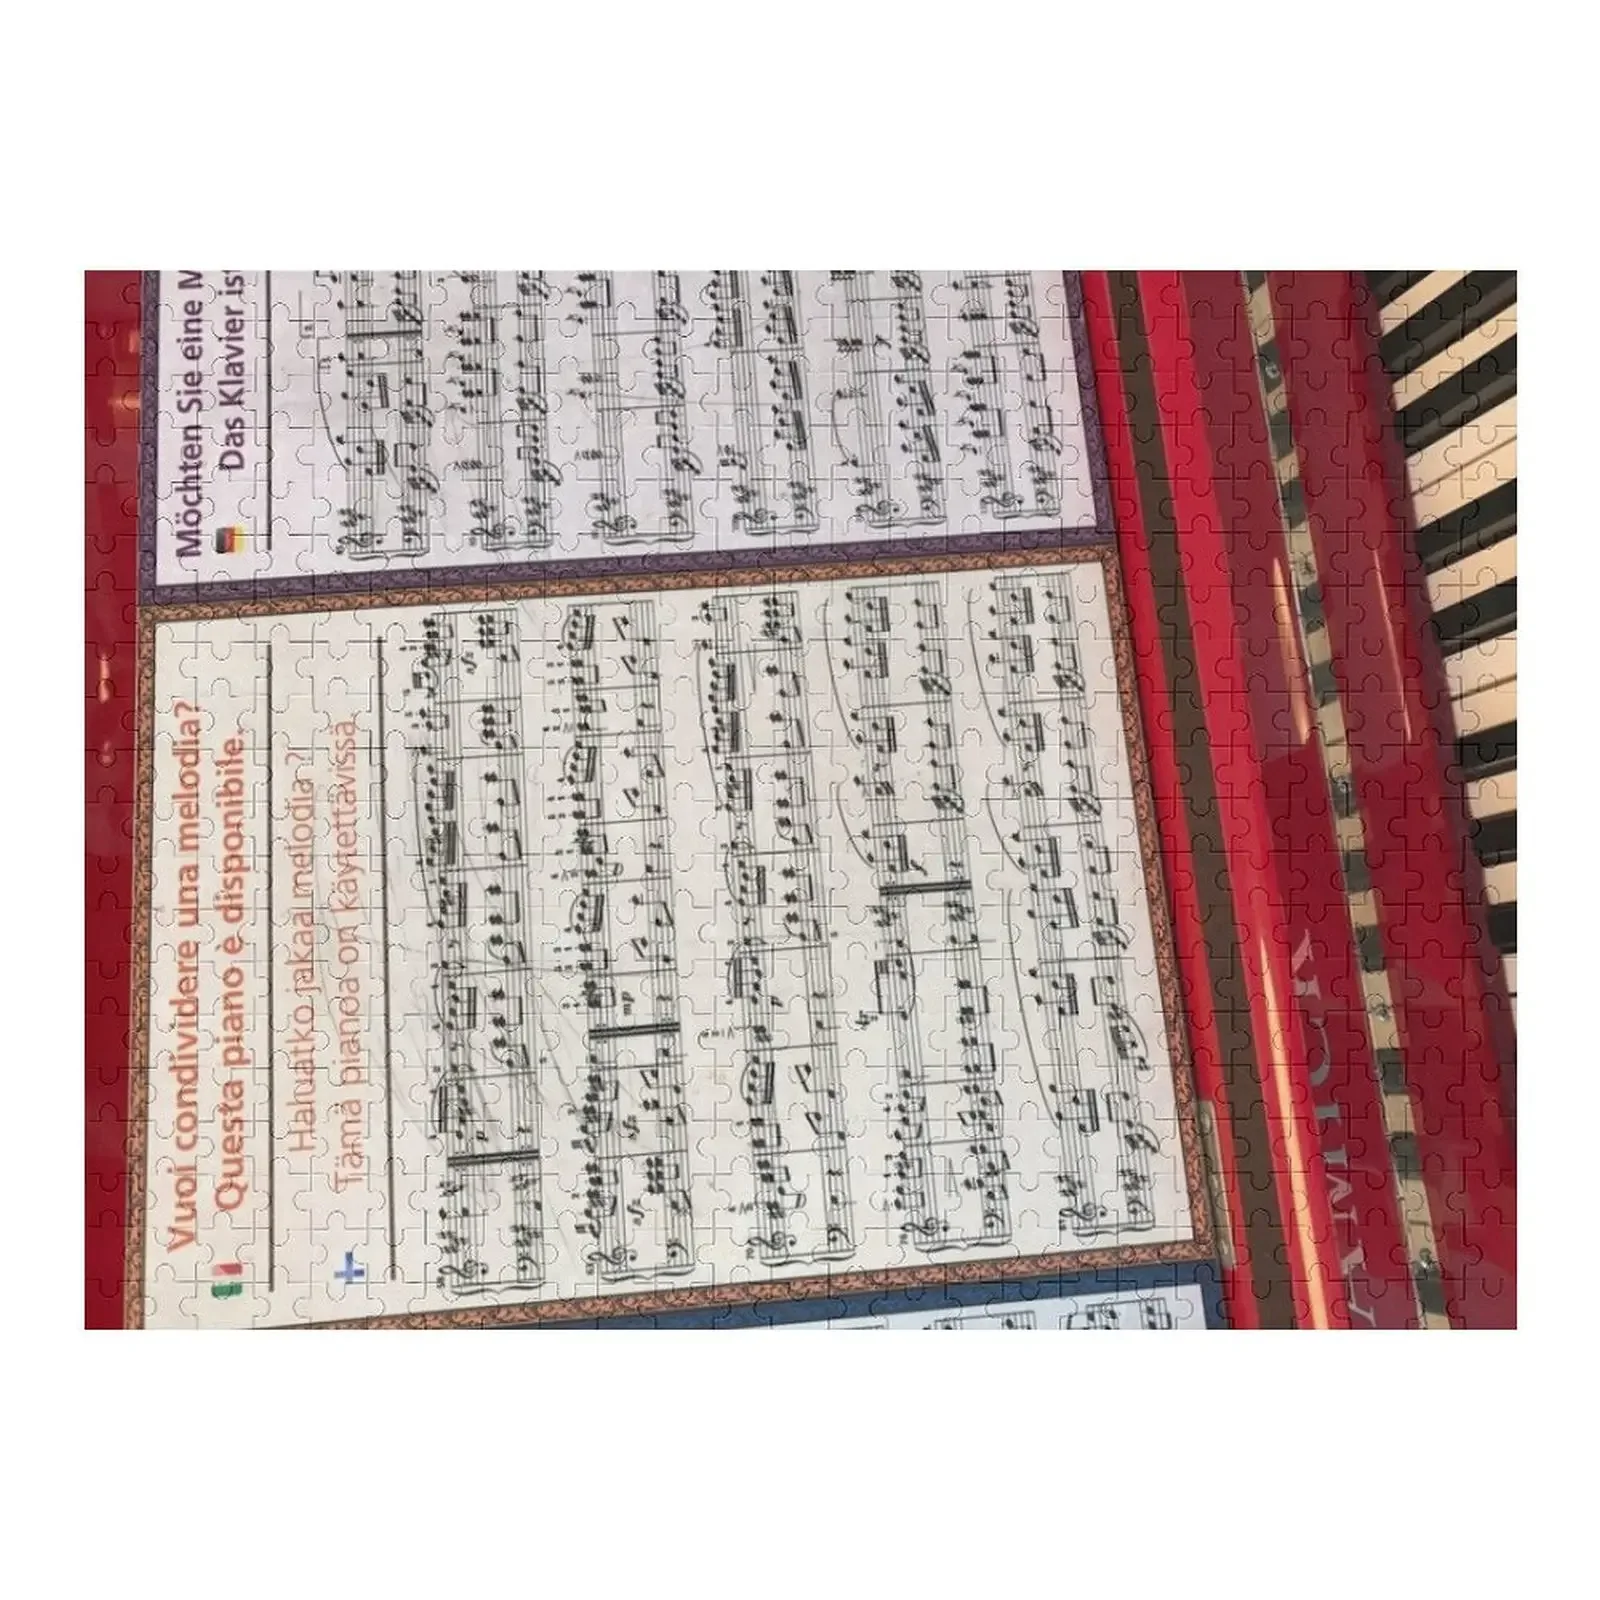 Möchten Sie eine M
Das Klavier ist
Vuoi condividere una melodia?
Questa piano è disponibile.
Haluatko jakaa melodia?
Tämä pianoa on käytettävissä.